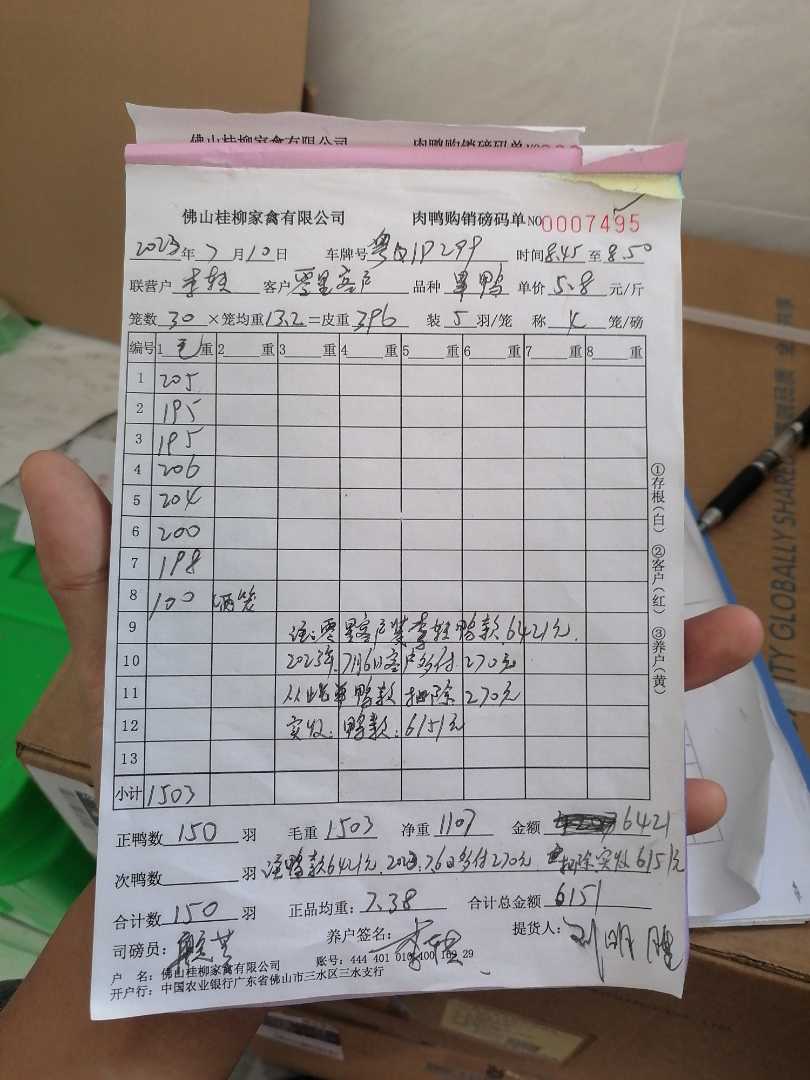 佛山桂柳家禽有限公司 肉鸭购销磅码单NO
佛山桂柳家禽有限公司 肉鸭购销磅码单NO 0007495
2023年7月10日 车牌号粤Q1P299 时间8.45至8.50
联营户李 客户零星客户 品种单鸭 单价5.8元/斤
笼数30×笼均重13.2=皮重396 装5羽/笼 称4笼/磅
编号 1毛重 2重 3重 4重 5重 6重 7重 8重
1 205
2 195
3 195
4 206
5 204
6 200
7 198
8 100 两笼
9 注:零星客户装李 鸭款6421元.
10 2023年.7月6日客户多付270元
11 从此单鸭款扣除270元
12 实收:鸭款:6151元
13
小计 1503
正鸭数150羽 毛重1503 净重1107 金额6421
次鸭数 羽 注鸭款6421元.2023.7.6日多付270元 扣除实收6151元
合计数150羽 正品均重:7.38 合计总金额6151
司磅员: 养户签名:李 提货人:刘明
户 名:佛山桂柳家禽有限公司 账号:444 401 010 400 109 29
开户行:中国农业银行广东省佛山市三水区三水支行
①存根(白) ②客户(红) ③养户(黄)
ITY GLOBALLY SHAR